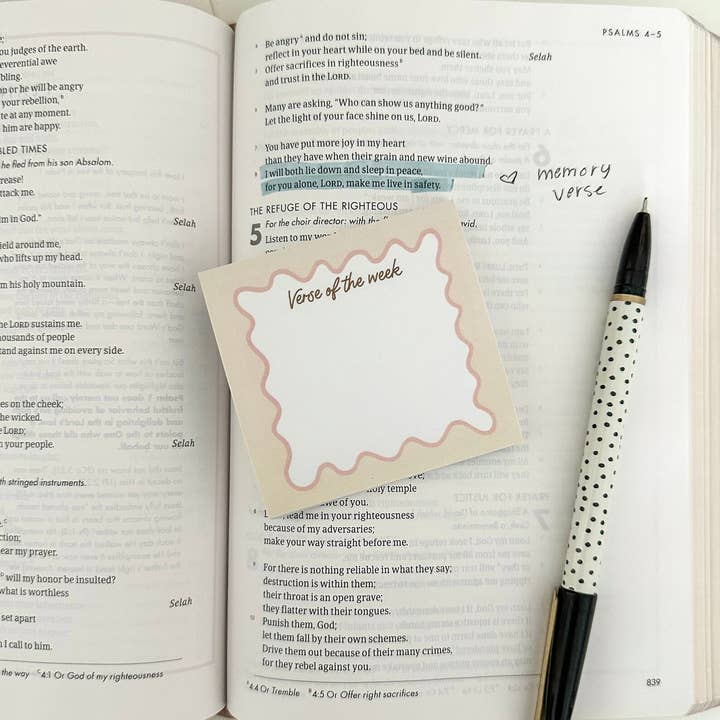 ou judges of the earth.
everential awe
bling.
on or he will be angry
your rebellion,
te at any moment.
him are happy.
BLED TIMES
he fled from his son Absalom.
rease!
ttack me.
m in God."
Selah
ield around me,
who lifts up my head.
m his holy mountain.
Selah
he LORD sustains me.
housands of people
tand against me on every side.
es on the cheek;
he wicked.
LORD;
your people.
Selah
th stringed instruments.
ction;
ear my prayer.
will my honor be insulted?
what is worthless
Selah
set apart
I call to him.
the way 4:1 Or God of my righteousness
PSALMS 4–5
Be angry and do not sin;
reflect in your heart while on your bed and be silent. Selah
Offer sacrifices in righteousness
and trust in the LORD.
Many are asking, "Who can show us anything good?"
Let the light of your face shine on us, LORD.
You have put more joy in my heart
than they have when their grain and new wine abound.
I will both lie down and sleep in peace,
for you alone, LORD, make me live in safety.
memory
verse
THE REFUGE OF THE RIGHTEOUS
5 For the choir director: with the vid.
Listen to my
Verse of the week
holy temple
we of you.
lead me in your righteousness
because of my adversaries;
make your way straight before me.
For there is nothing reliable in what they say;
destruction is within them;
their throat is an open grave;
they flatter with their tongues.
Punish them, God;
let them fall by their own schemes.
Drive them out because of their many crimes,
for they rebel against you.
4:4 Or Tremble 4:5 Or Offer right sacrifices
839